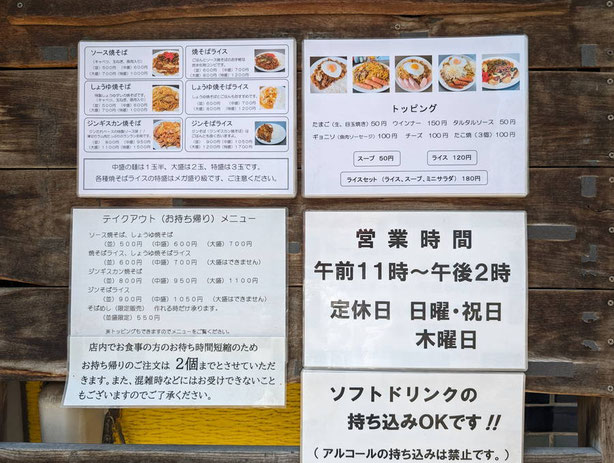 ソース焼そば
(並)500円 (中盛)600円
(大盛)700円 (特盛)1000円
しょうゆ焼そば
ジンギスカン焼そば
焼そばライス
しょうゆ焼そばライス
ジンそばライス
中盛の麺は1玉半。大盛は2玉、特盛は3玉です。
各種焼そばライスの特盛はメガ盛り級です、ご注意ください。
トッピング
たまご(生、目玉焼き)50円 ウインナー 150円 タルタルソース 50円
ギョニソ(魚肉ソーセージ)100円 チーズ 100円 たこ焼(3個)100円
スープ 50円
ライス 120円
ライスセット(ライス、スープ、ミニサラダ)180円
テイクアウト(お持ち帰り)メニュー
ソース焼そば、しょうゆ焼そば
(並)500円 (中盛)600円 (大盛)700円
焼そばライス、しょうゆ焼そばライス
(並)600円 (中盛)700円 (大盛はできません)
ジンギスカン焼そば
(並)800円 (中盛)950円 (大盛)1100円
ジンそばライス
(並)900円 (中盛)1050円 (大盛はできません)
そばめし(限定販売) 作れる時だけ承ります。
(並盛限定)550円
※トッピングもできますのでメニューをご覧ください。
店内でお食事の方のお待ち時間短縮のため
お持ち帰りのご注文は 2個までとさせていただ
きます。また、混雑時などにはお受けできないこと
もございますのでご了承ください。
営業時間
午前11時～午後2時
定休日 日曜・祝日
木曜日
ソフトドリンクの
持ち込みOKです!!
(アルコールの持ち込みは禁止です。)